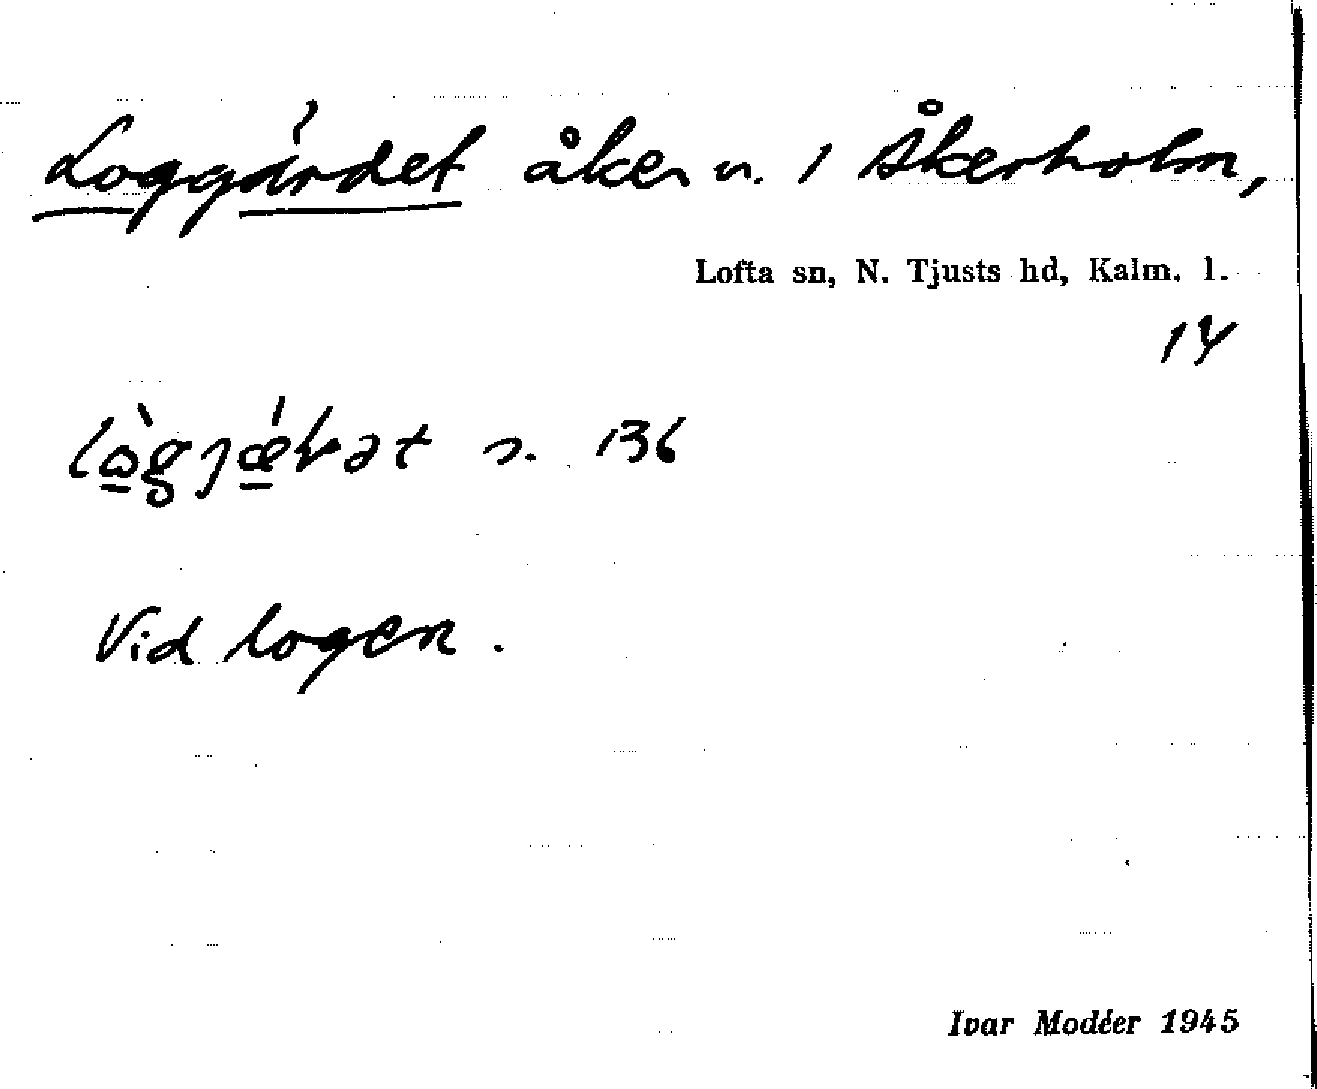 Loggärdet åker n. 1 Åkerholm,
Lofta sn, N. Tjusts hd, Kalm. l.
14
s. 136
Vid logen.
Ivar Modéer 1945